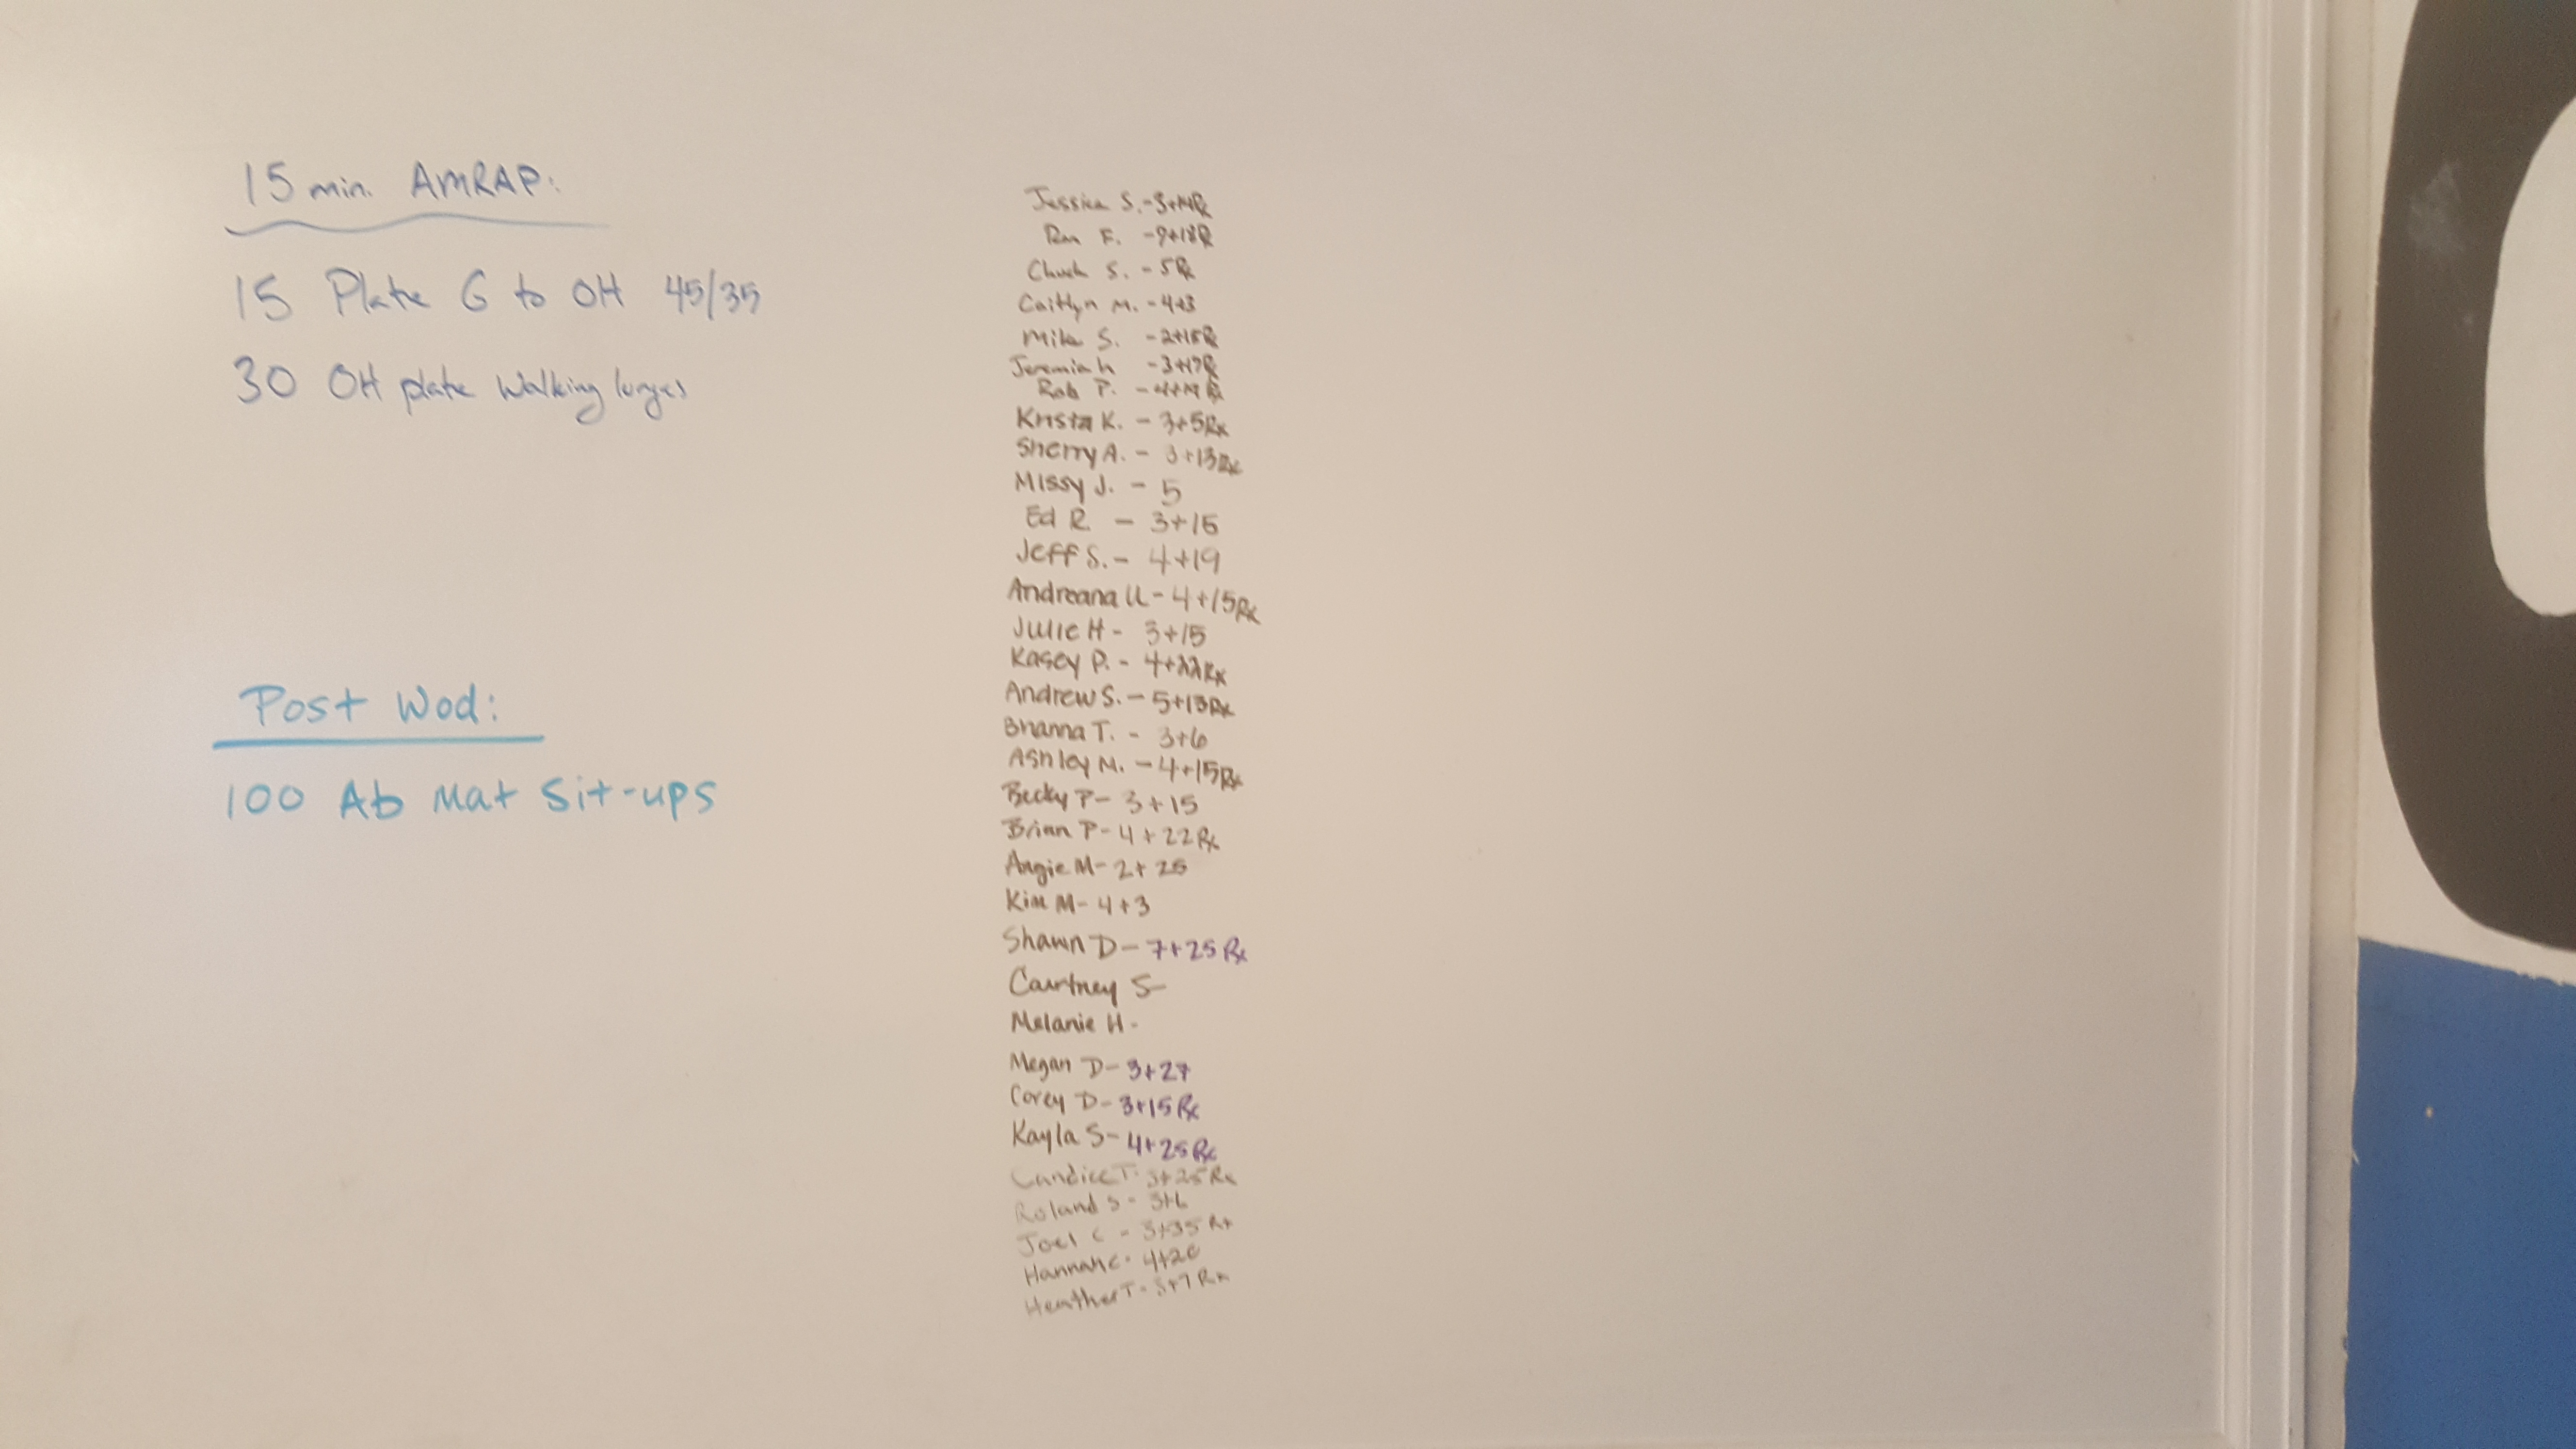 15 min. AMRAP:
15 Plate G to OH 45/35
30 OH plate Walking lunges
Post Wod:
100 Ab Mat Sit-ups
Jessica S. - 3+14Rx
F. - 9+18Rx
Chuck S. - 5Rx
Caitlyn M. - 4+3
Mike S. - 2+15Rx
Jeremiah - 3+17Rx
Rob P. -
Krista K. - 3+5Rx
Sherry A. - 3+13Rx
Missy J. - 5
Ed R. - 3+15
Jeff S. - 4+19
Andreana U - 4+15Rx
Julie H - 3+15
Kasey P. - 4+22Rx
Andrew S. - 5+13Rx
Brianna T. - 3+6
Ashley M. - 4+15Rx
Becky P - 3+15
Brian P - 4+22Rx
Angie M - 2+25
Kim M - 4+3
Shawn D - 7+25Rx
Courtney S -
Melanie H -
Megan D - 3+27
Corey D - 3+15Rx
Kayla S - 4+25Rx
Candice T. 3+25Rx
Roland S - 3+6
Joel C - 3+35 Rx
Hannah C - 4+20
Heather T - 3+7 Rx